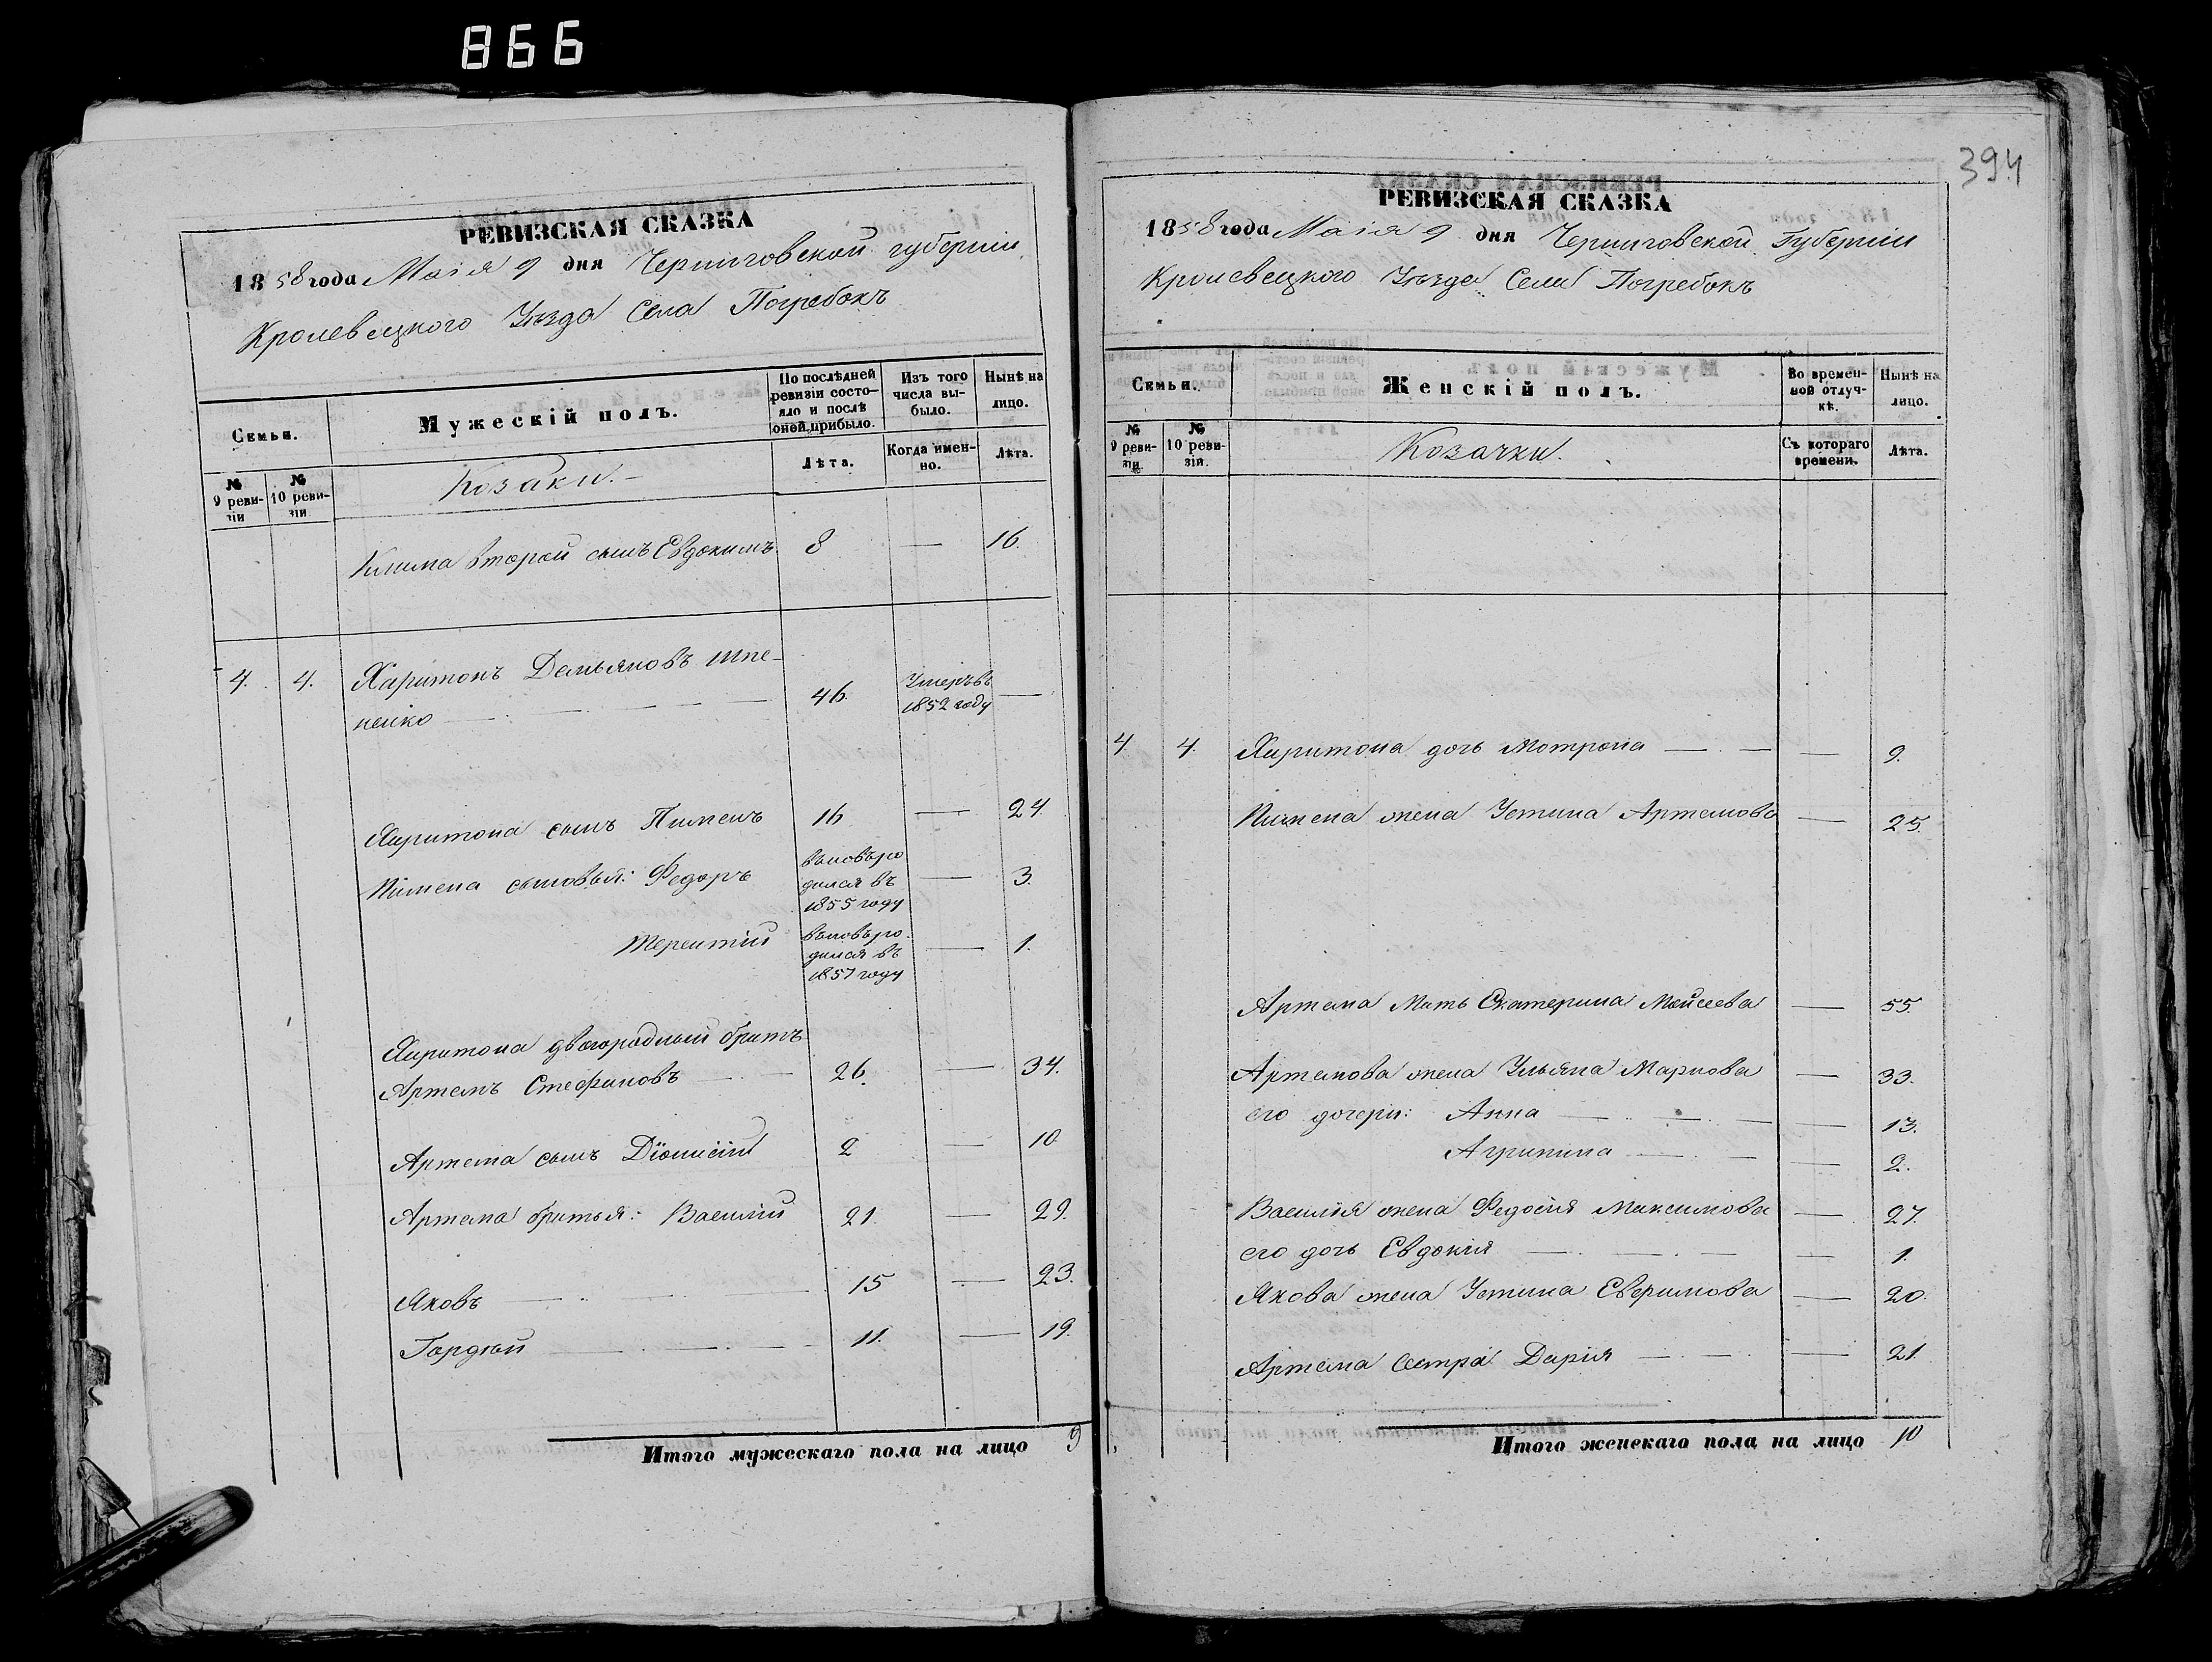 866
РЕВИЗСКАЯ СКАЗКА
1858 года Маія 9 дня Черниговской губерніи
Кролевецкого Уѣзда Села Погребокъ
Семьи.
Мужескій полъ.
По послѣдней ревизіи состояло и послѣ оной прибыло.
Изъ того числа выбыло.
Нынѣ на лицо.
№ 9 ревизіи
№ 10 ревизіи
Козаки.
Лѣта.
Когда именно.
Лѣта.
Клима второй сынъ Евдокимъ 8 — 16.
4. 4. Харитонъ Демьяновъ Шпе-
ненко — 46. Умеръ въ 1852 году —
Харитона сынъ Пименъ 16 — 24.
Пимена сыновья: Федоръ вновь родился въ 1855 году — 3.
Терентій вновь родился въ 1857 году — 1.
Харитона двоюродный братъ
Артемъ Стефановъ — 26. — 34.
Артема сынъ Діонисій 2 — 10
Артема братья: Василій 21. — 29.
Яковъ — 15 — 23.
Гордѣй — 11. — 19.
Итого мужескаго пола на лицо 9
394
РЕВИЗСКАЯ СКАЗКА
1858 года Маія 9 дня Черниговской Губерніи
Кролевецкого Уѣзда Села Погребокъ
Семьи.
Женскій полъ.
Во временной отлучкѣ.
Нынѣ на лицо.
№ 9 ревизіи.
№ 10 ревизіи.
Козачки.
Съ котораго времени.
Лѣта.
4. 4. Харитона дочь Мотрона — — 9.
Пимена жена Устина Артемова — 25.
Артема Мать Екатерина Моисеева — 55.
Артемова жена Ульяна Маркова — 33.
его дочери: Анна — — 13.
Агрипина — — 2.
Василія жена Федосія Максимова — 27.
его дочь Евдокія — — 1.
Якова жена Устина Еверимова — 20.
Артема Сестра Дарія — — 21.
Итого женскаго пола на лицо 10